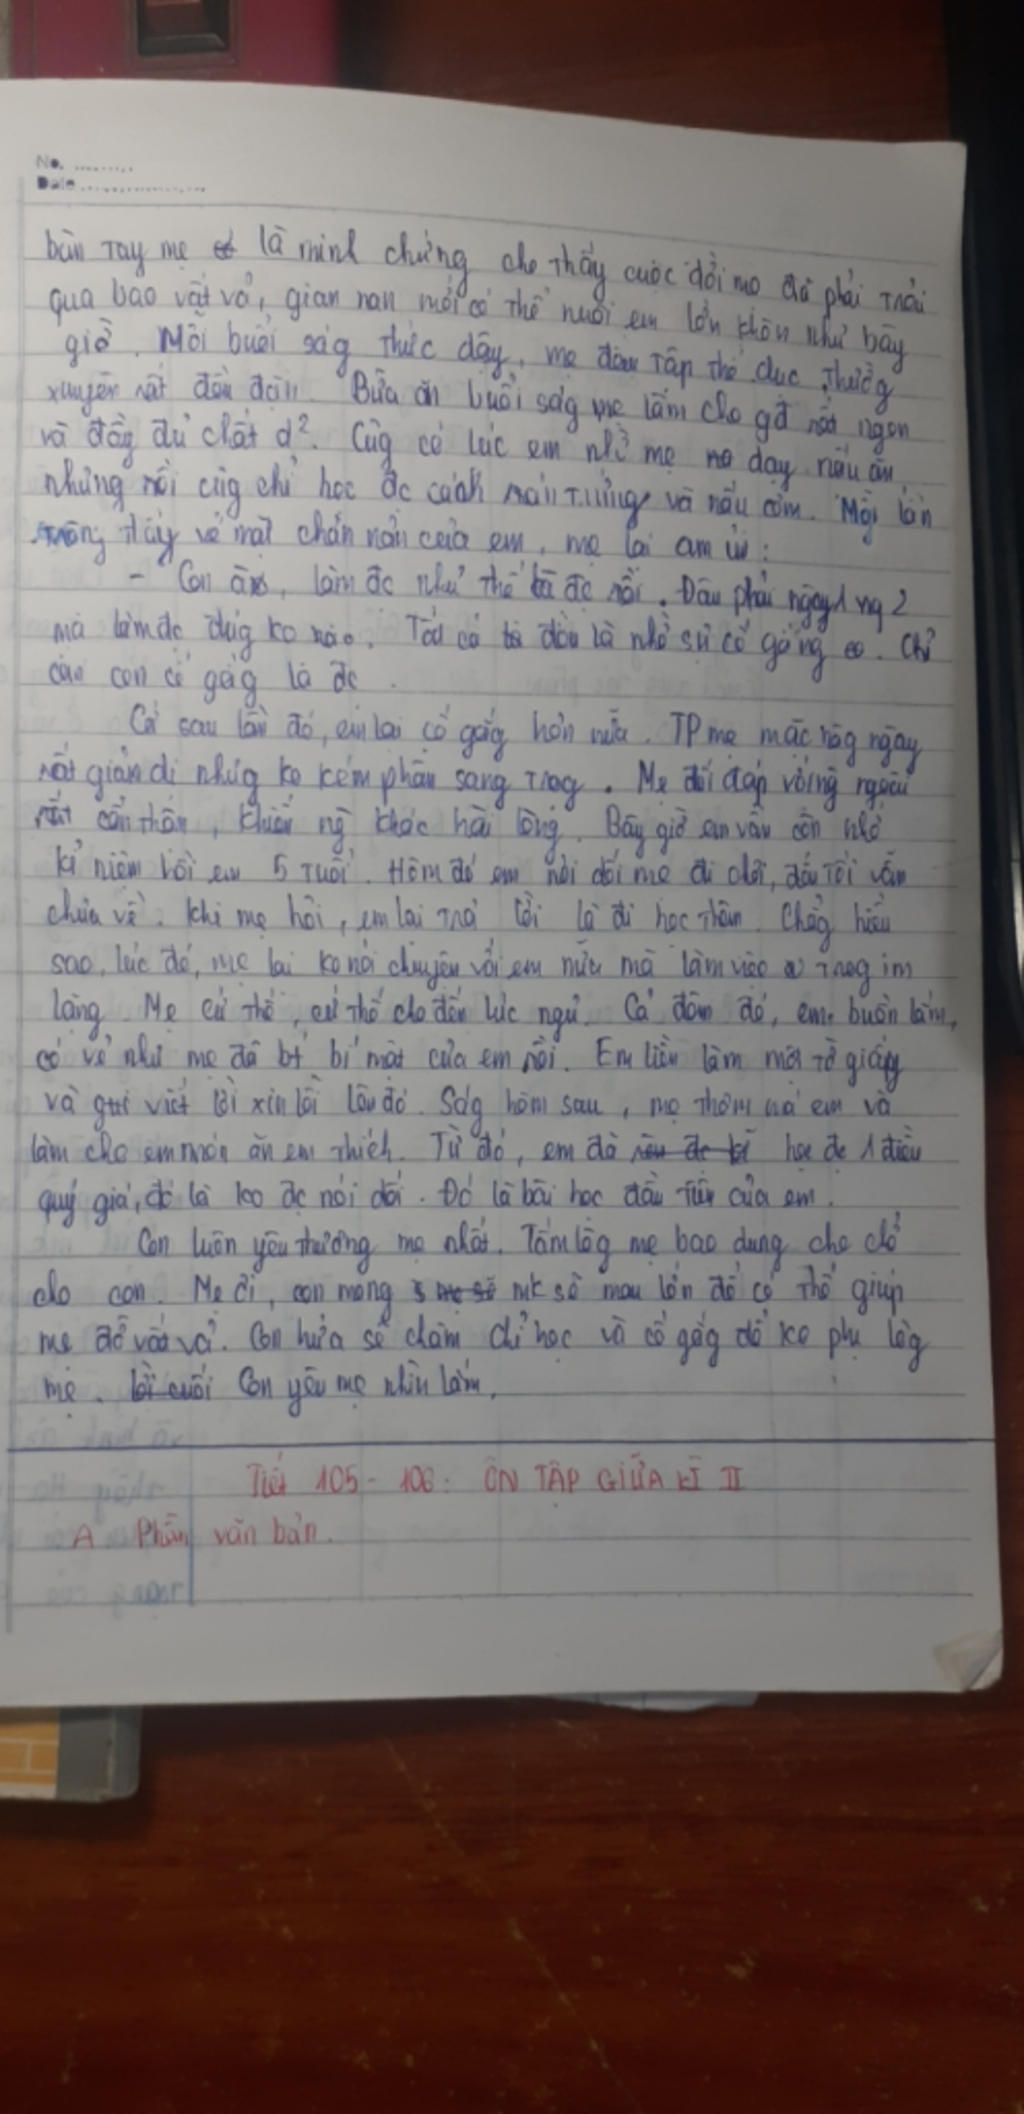 No. .........
Date ..................
bàn tay mẹ là minh chứng cho thấy cuộc đời mẹ đã phải trải
qua bao vất vả, gian nan mới có thể nuôi em lớn khôn như bây
giờ. Mỗi buổi ság thức dậy, mẹ đều tập thể dục thườg
xuyên rất đều đặn. Bữa ăn buổi ság mẹ làm cho gđ rất ngon
và đầy đủ chất d². Cũg có lúc em nhờ mẹ dạy nấu ăn
nhưng rồi cũg chỉ học đc cách rán trứng và nấu cơm. Mỗi lần
trông thấy vẻ mặt chán nản của em, mẹ lại am ủi:
- Con àm, làm đc như thế là đc rồi. Đâu phải ngày 1 ng 2
mà làm đc đúg ko nào. Tất cả đều là nhờ sự cố gắng. Chỉ
cần con cố gắg là đc.
Cứ sau lần đó, em lại cố gắg hơn nữa. TP mẹ mặc hàg ngày
rất giản dị nhưg ko kém phần sang trọg. Mẹ đối đáp với ng ngoài
rất cẩn thận, khiến ng khác hài lòng. Bây giờ em vẫn còn nhớ
kỉ niệm hồi em 5 tuổi. Hôm đó em nói dối mẹ đi chơi, đến tối vẫn
chưa về. Khi mẹ hỏi, em lại trả lời là đi học thêm. Chẳg hiểu
sao, lúc đó, mẹ lại ko nói chuyện với em nữa mà làm việc trog im
lặng. Mẹ cứ thế, cứ thế cho đến lúc ngủ. Cả đêm đó, em buồn lắm,
có vẻ như mẹ đã bt bí mật của em rồi. Em liền làm một tờ giấy
và viết lời xin lỗi lên đó. Ság hôm sau, mẹ thơm má em và
làm cho em món ăn em thích. Từ đó, em đã học đc 1 điều
quý giá, đó là ko đc nói dối. Đó là bài học đầu tiên của em.
Con luôn yêu thương mẹ nhất. Tấm lòg mẹ bao dung che chở
cho con. Mẹ ơi, con mong mk sẽ mau lớn để có thể giúp
mẹ đỡ vất vả. Con hứa sẽ chăm chỉ học và cố gắg để ko phụ lòg
mẹ. Con yêu mẹ nhìu lắm.
Tiết 105 - 106: ÔN TẬP GIỮA KÌ II
A Phần văn bản.